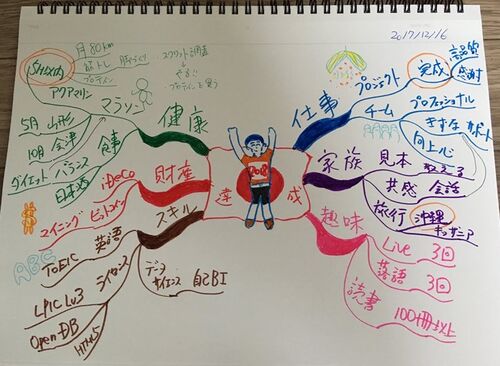 2017/12/16
達成
2018
仕事
プロジェクト
完成
高品質
感謝
チーム
プロフェッショナル
きずな サポート
向上心
家族
見本
教える
共感
会話
旅行
沖縄
趣味
Live
3回
落語
3回
読書
100冊以上
健康
マラソン
月80km
筋トレ
プロテイン
スクワット調査
やる!
プロテインを買う
アクアマリン
5月 山形
10月 会津
食事
ダイエット
バランス
日本酒
財産
iDeCo
ビットコイン
マイニング
スキル
英語
TOEIC
ABC
ライセンス
LPIC Lv3
Open DB
HTML5
データ
サイエンス
自己BI